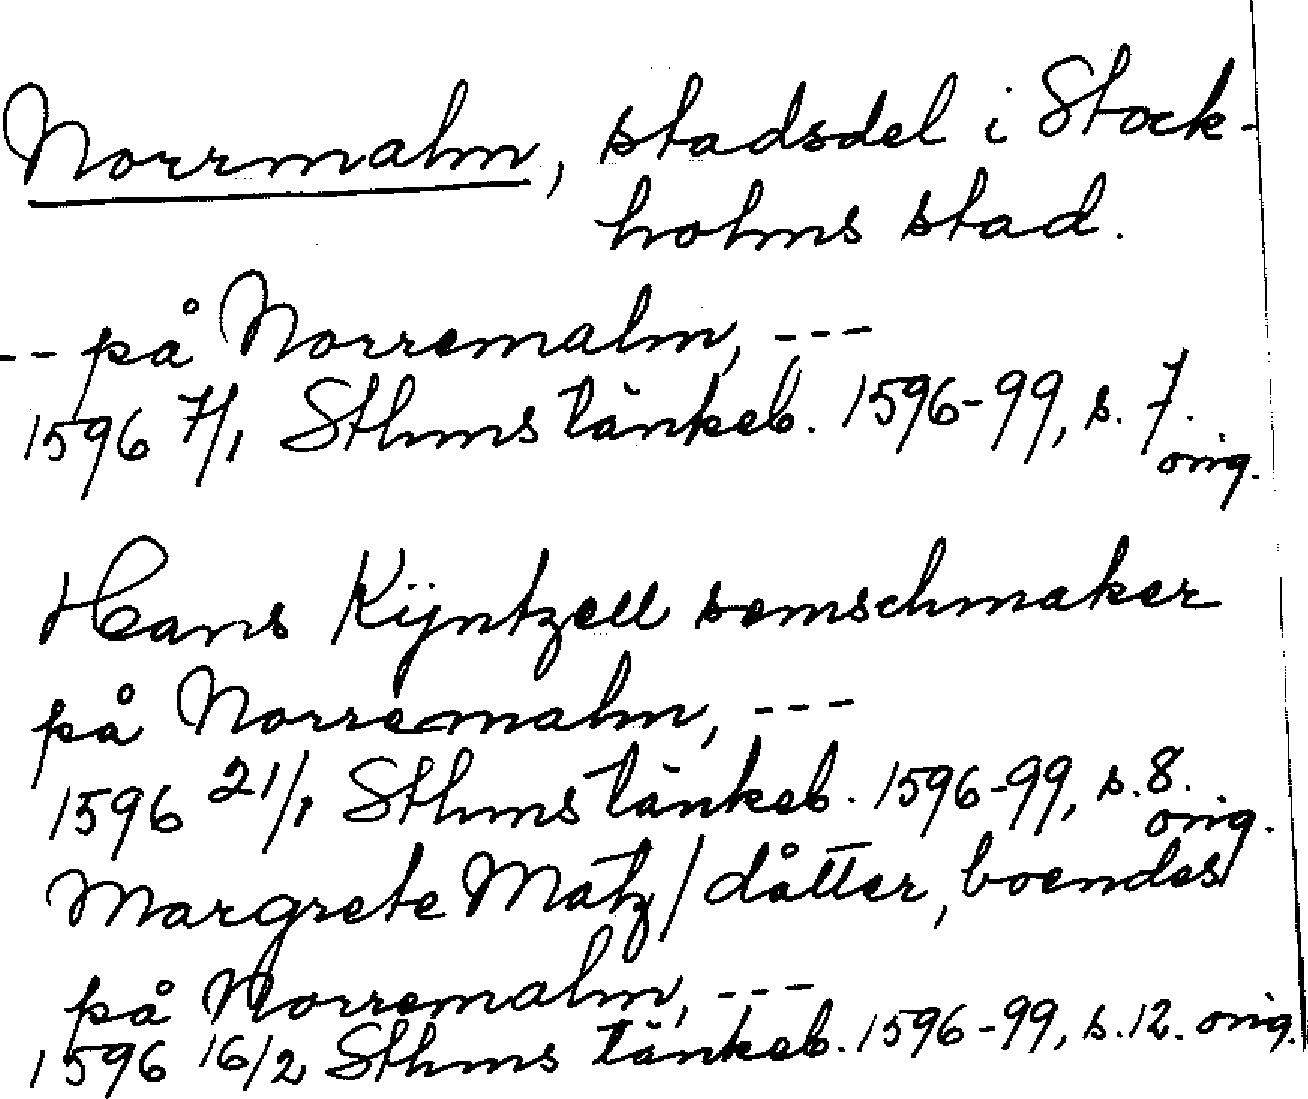 Norrmalm, stadsdel i Stock-
holms stad.
-- på Norremalm, ---
1596 7/1 Sthms tänkeb. 1596-99, s. 7.
orig.
Hans Kÿntzell semschmaker
på Norremalm, ---
1596 21/1 Sthms tänkeb. 1596-99, s. 8.
orig.
Margrete Matz/dåtter, boendes
på Norremalm, ---
1596 16/2 Sthms tänkeb. 1596-99, s. 12. orig.